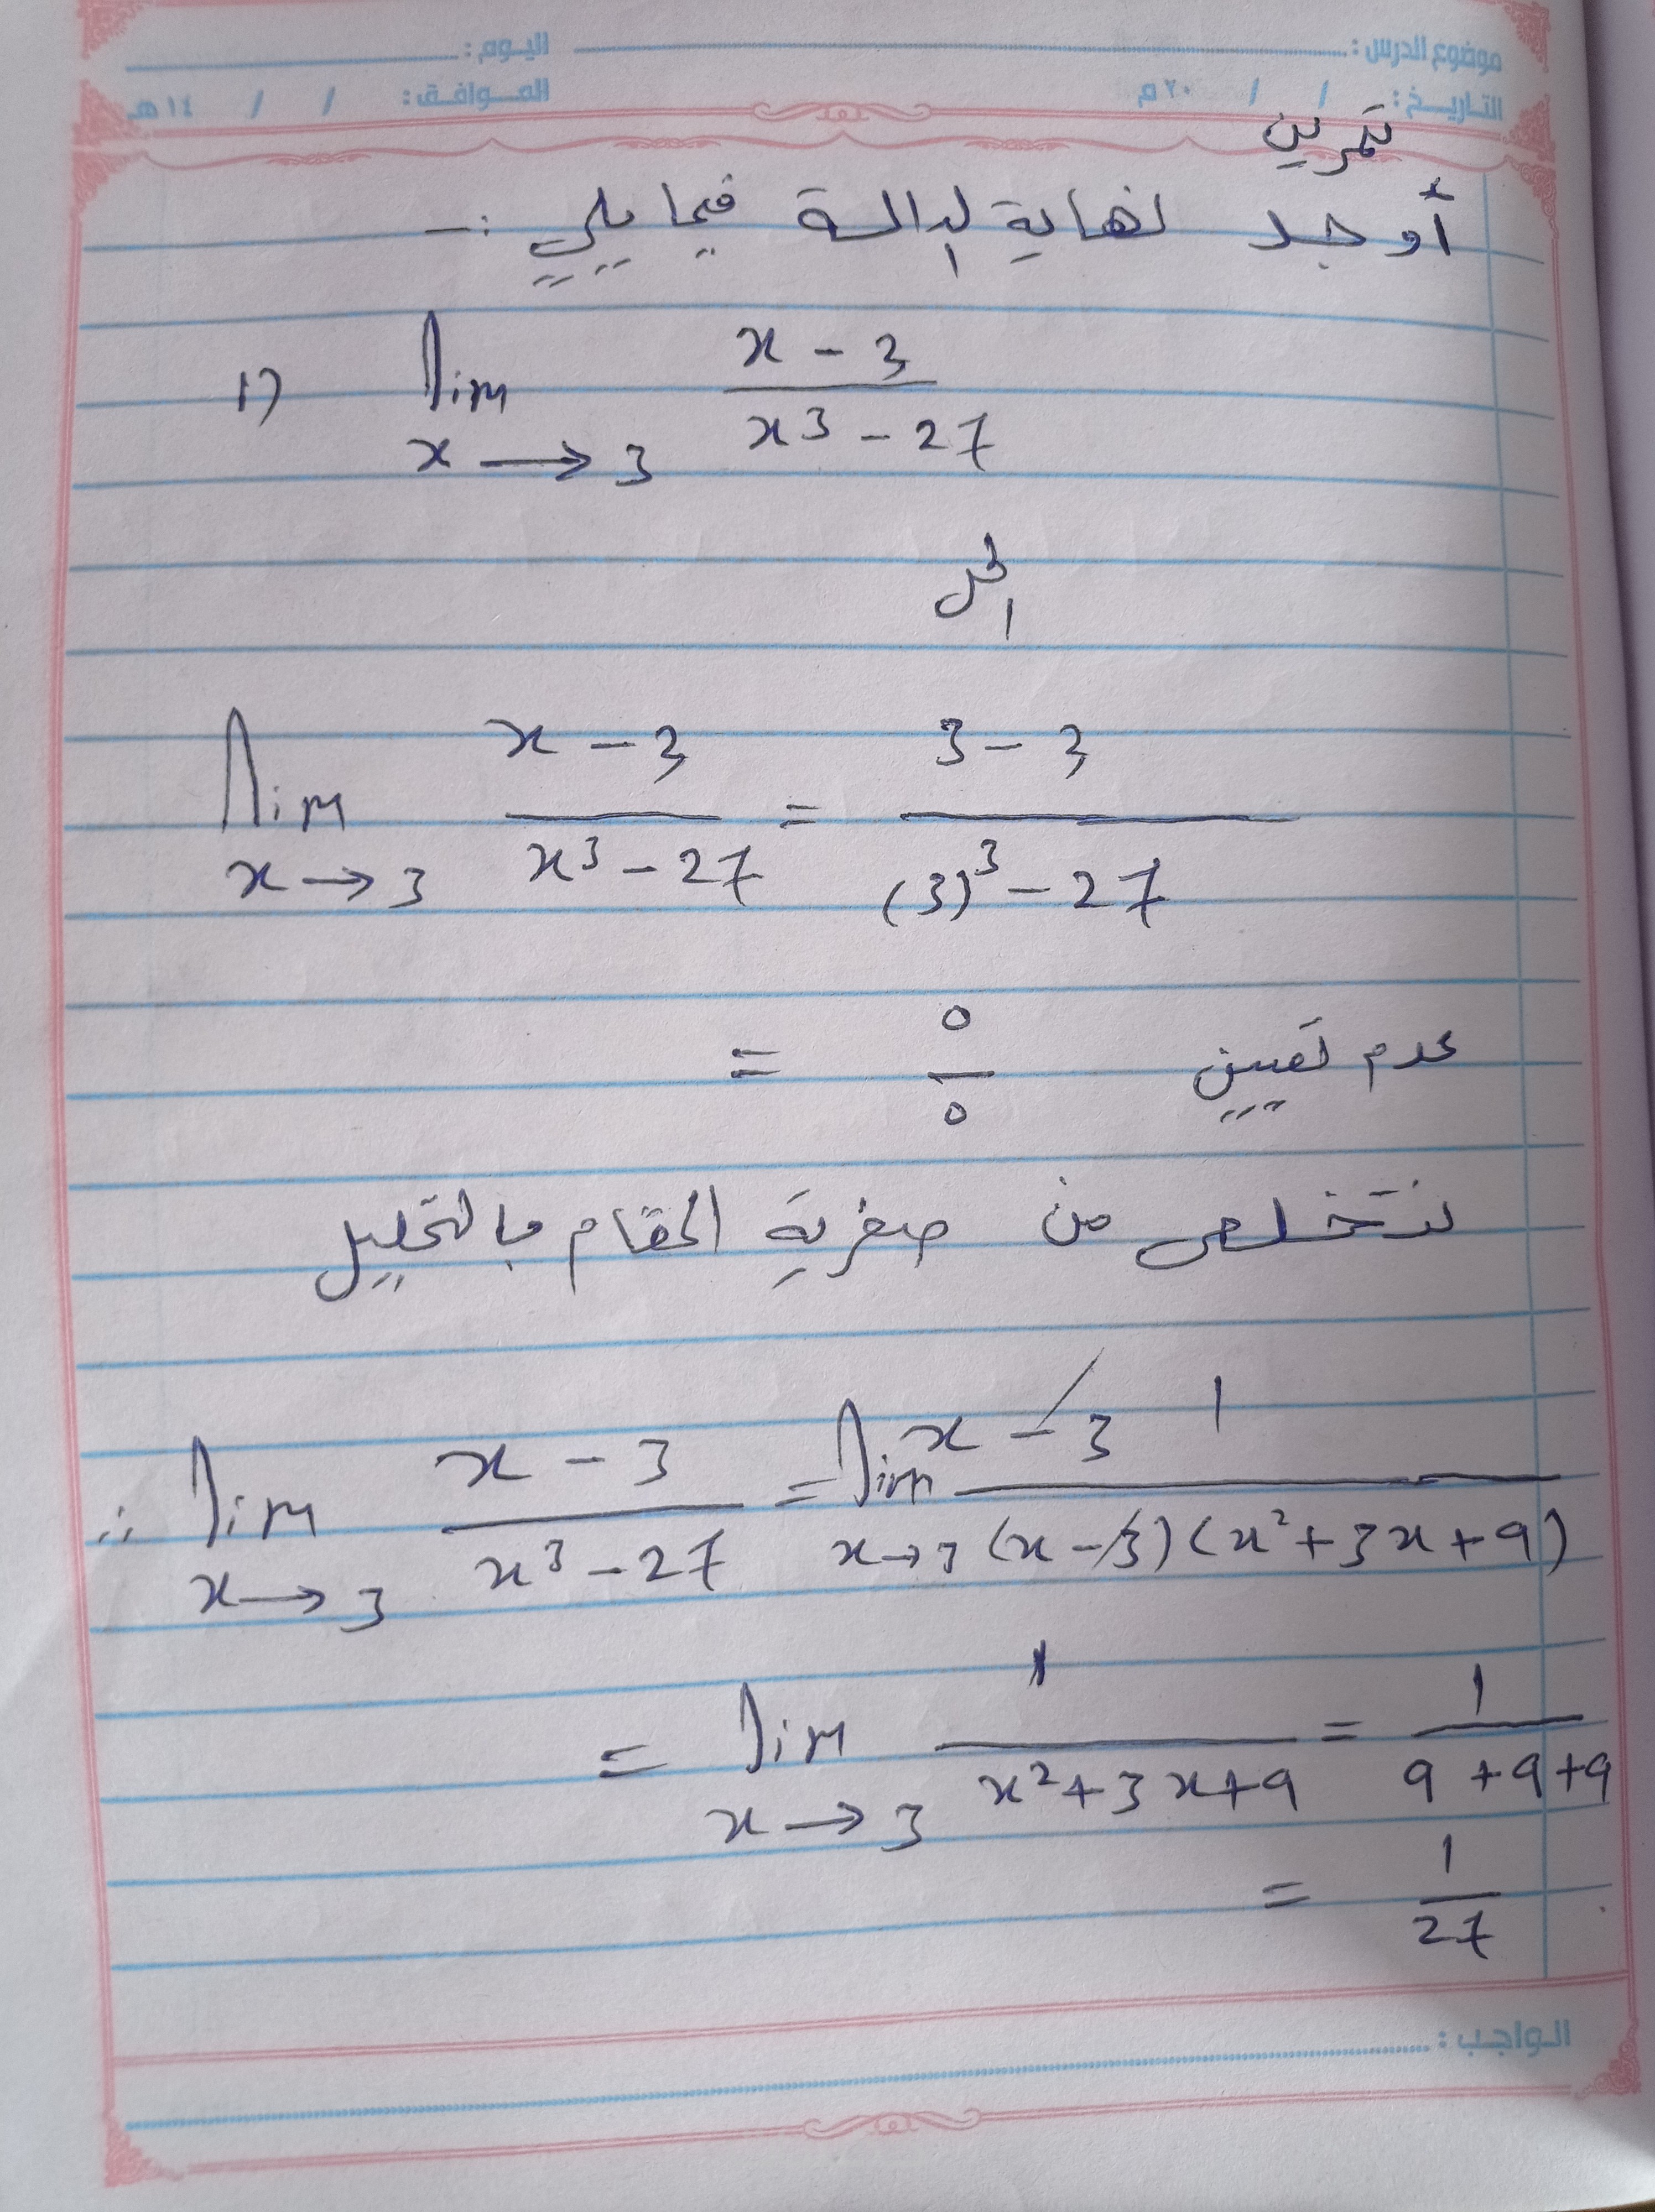 موضوع الدرس : اليوم :
التاريخ : / / ٢٠ م الموافق : / / ١٤ هـ
تمرين
أوجد نهاية الدالة فيما يلي :-
1) lim x→3 (x - 3)/(x³ - 27)
الحل
lim x→3 (x - 3)/(x³ - 27) = (3 - 3)/((3)³ - 27)
= 0/0 عدم تعيين
نتخلص من صفرية المقام بالتحليل
∴ lim x→3 (x - 3)/(x³ - 27) = lim x→3 (x - 3) 1/((x - 3)(x² + 3x + 9))
= lim x→3 1/(x² + 3x + 9) = 1/(9 + 9 + 9)
= 1/27
الواجب :